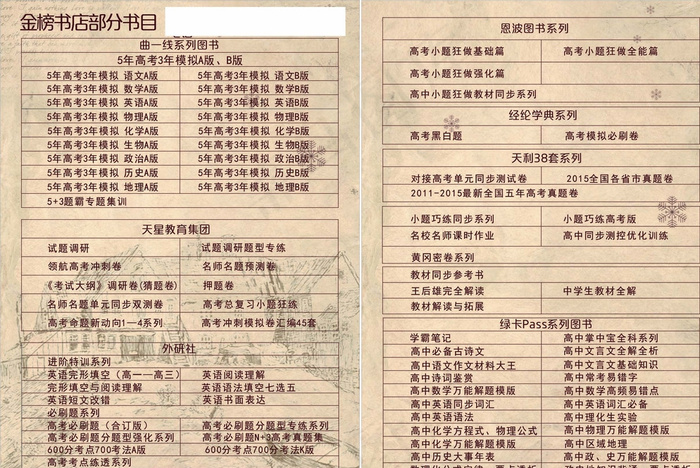 金榜书店部分书目
曲一线系列图书
5年高考3年模拟A版、B版
5年高考3年模拟 语文A版 5年高考3年模拟 语文B版
5年高考3年模拟 数学A版 5年高考3年模拟 数学B版
5年高考3年模拟 英语A版 5年高考3年模拟 英语B版
5年高考3年模拟 物理A版 5年高考3年模拟 物理B版
5年高考3年模拟 化学A版 5年高考3年模拟 化学B版
5年高考3年模拟 生物A版 5年高考3年模拟 生物B版
5年高考3年模拟 政治A版 5年高考3年模拟 政治B版
5年高考3年模拟 历史A版 5年高考3年模拟 历史B版
5年高考3年模拟 地理A版 5年高考3年模拟 地理B版
5+3题霸专题集训
天星教育集团
试题调研 试题调研题型专练
领航高考冲刺卷 名师名题预测卷
《考试大纲》调研卷(猜题卷) 押题卷
名师名题单元同步双测卷 高考总复习小题狂练
高考命题新动向1—4系列 高考冲刺模拟卷汇编45套
外研社
进阶特训系列
英语完形填空（高一——高三） 英语阅读理解
完形填空与阅读理解 英语语法填空七选五
英语短文改错 英语书面表达
必刷题系列
高考必刷题（合订版） 高考必刷题分题型专练系列
高考必刷题分题型强化系列 高考必刷题N+3高考真题集
600分考点700考法A版 600分考点700考法K版
高考考点练透系列
恩波图书系列
高考小题狂做基础篇 高考小题狂做全能篇
高考小题狂做强化篇
高中小题狂做教材同步系列
经纶学典系列
高考黑白题 高考模拟必刷卷
天利38套系列
对接高考单元同步测试卷 2015全国各省市真题卷
2011-2015最新全国五年高考真题卷
小题巧练同步系列 小题巧练高考版
名校名师课时作业 高中同步测控优化训练
黄冈密卷系列
教材同步参考书
王后雄完全解读 中学生教材全解
教材解读与拓展
绿卡Pass系列图书
学霸笔记 高中掌中宝全科系列
高中必备古诗文 高中文言文全解全析
高中语文作文材料大王 高中文言文基础知识
高中诗词鉴赏 高中常考易错字
高中数学万能解题模版 高中数学高频易错点
高中英语同步词汇 高中英语词汇必备
高中英语语法 高中理化生实验
高中化学方程式、物理公式 高中物理万能解题模版
高中化学万能解题模版 高中区域地理
高中历史大事年表 高中政、史万能解题模版